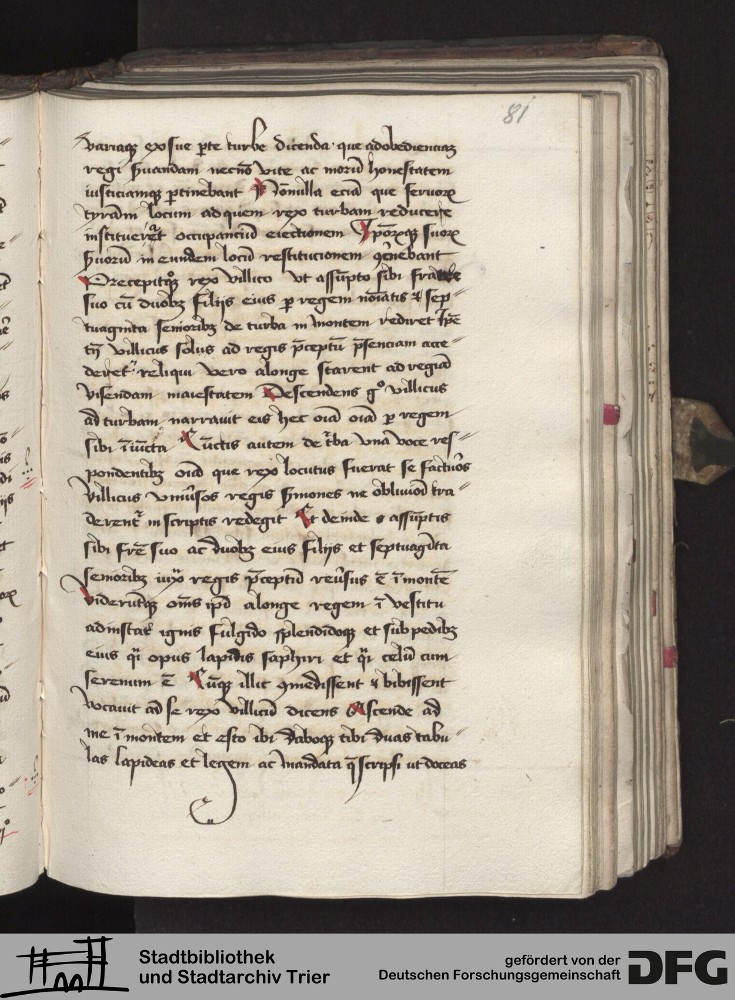 81
variaqꝫ ex sue ꝑte turbe dicenda · que ad obedienciaꝫ
regi ẜuandam necnō vite ac morū honestatem
iusticiamqꝫ ꝑtinebant Nōnulla eciā que seruorꝫ
locum ad quem rex turbam reducere
occupanciū eiectionem suorꝫ
ẜuorū in eundem locū restitucionem ꝯtinebant
rex villico vt assūpto sibi fratre
suo cū duobꝫ filijs eius ꝑ regem noīatis ⁊ sep⸗
tuaginta senioribꝫ de turba in montem rediret
tn̄ villicus solus ad regis p̄ceptū p̄senciam acce⸗
deret reliqui vero alonge starent ad regiā
visendam maiestatem Descendens gͦ villicus
ad turbam narrauit eis hec oīa oīa ꝑ regem
sibi īiūcta Cūctis autem de t̄ba vna voce res⸗
pondentibꝫ oīa que rex locutus fuerat se factūos
Villicus vniūsos regis ẜmones ne obliuioī tra⸗
derent᷑ in scriptis redegit Et deinde assūptis
sibi fr̄e suo ac duobꝫ eius filijs et septuagīta
senioribꝫ iuxͣ regis p̄ceptū reūsus ē ī montē
Viderūtqꝫ om̄s ip̄i alonge regem ī vestitu
ad instar ignis fulgido splendidoqꝫ et sub pedibꝫ
eius qͣi opus lapidis saphiri et qͣi celū cum
serenum ē Cūqꝫ illic ꝯmedissent ⁊ bibissent
vocauit ad se rex villicū dicens Ascende ad
me ī montem et esto ibi daboqꝫ tibi duas tabu⸗
las lapideas et legem ac mandata q̄ scripsi ut doceas
Stadtbibliothek
und Stadtarchiv Trier
gefördert von der
Deutschen Forschungsgemeinschaft
DFG